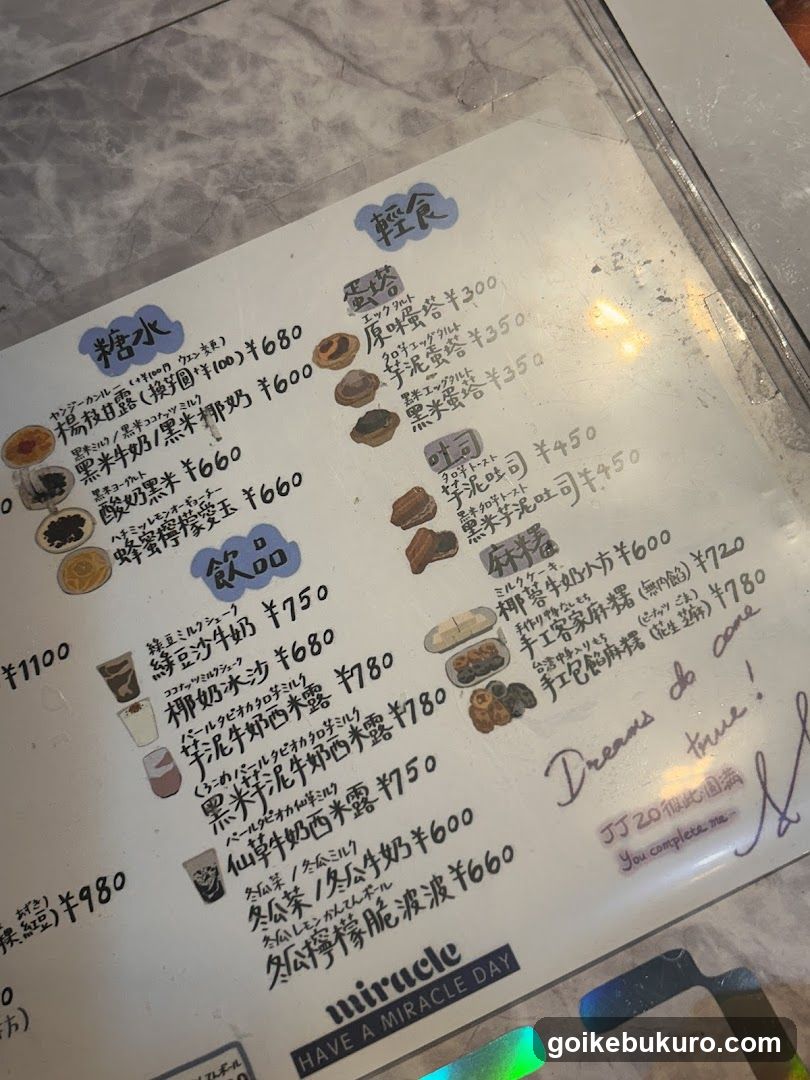 糖水
ヤンジーカンルー (+¥100円
楊枝甘露(換芋圓+¥100)¥680
黒米ミルク/黒米ココナッツミルク
黑米牛奶/黑米椰奶 ¥600
黒米ヨーグルト
酸奶黑米 ¥660
ハチミツレモンオーギョーチー
蜂蜜檸檬愛玉 ¥660
飲品
緑豆ミルクシェーク
綠豆沙牛奶 ¥750
ココナッツミルクシェーク
椰奶冰沙 ¥680
パールタピオカタロ芋ミルク
芋泥牛奶西米露 ¥780
くろごめパールタピオカタロ芋ミルク
黑米芋泥牛奶西米露 ¥780
パールタピオカ仙草ミルク
仙草牛奶西米露 ¥750
冬瓜茶/冬瓜ミルク
冬瓜茶/冬瓜牛奶 ¥600
冬瓜レモンかんてんボール
冬瓜檸檬脆波波 ¥660
輕食
蛋塔
エッグタルト
原味蛋塔 ¥300
タロ芋エッグタルト
芋泥蛋塔 ¥350
黒米エッグタルト
黑米蛋塔 ¥350
吐司
タロ芋トースト
芋泥吐司 ¥450
黒米タロ芋トースト
黑米芋泥吐司 ¥450
麻糬
ミルクケーキ
椰蓉牛奶小方 ¥600
手工客家麻糬(無內餡) ¥720
(ピーナッツ ごま)
手工包餡麻糬(花生芝麻) ¥780
¥1100
あずき)
粿 紅豆)¥980
Dreams do come
true!
JJ20彼此圓滿
You complete me-
miracle
HAVE A MIRACLE DAY
goikebukuro.com